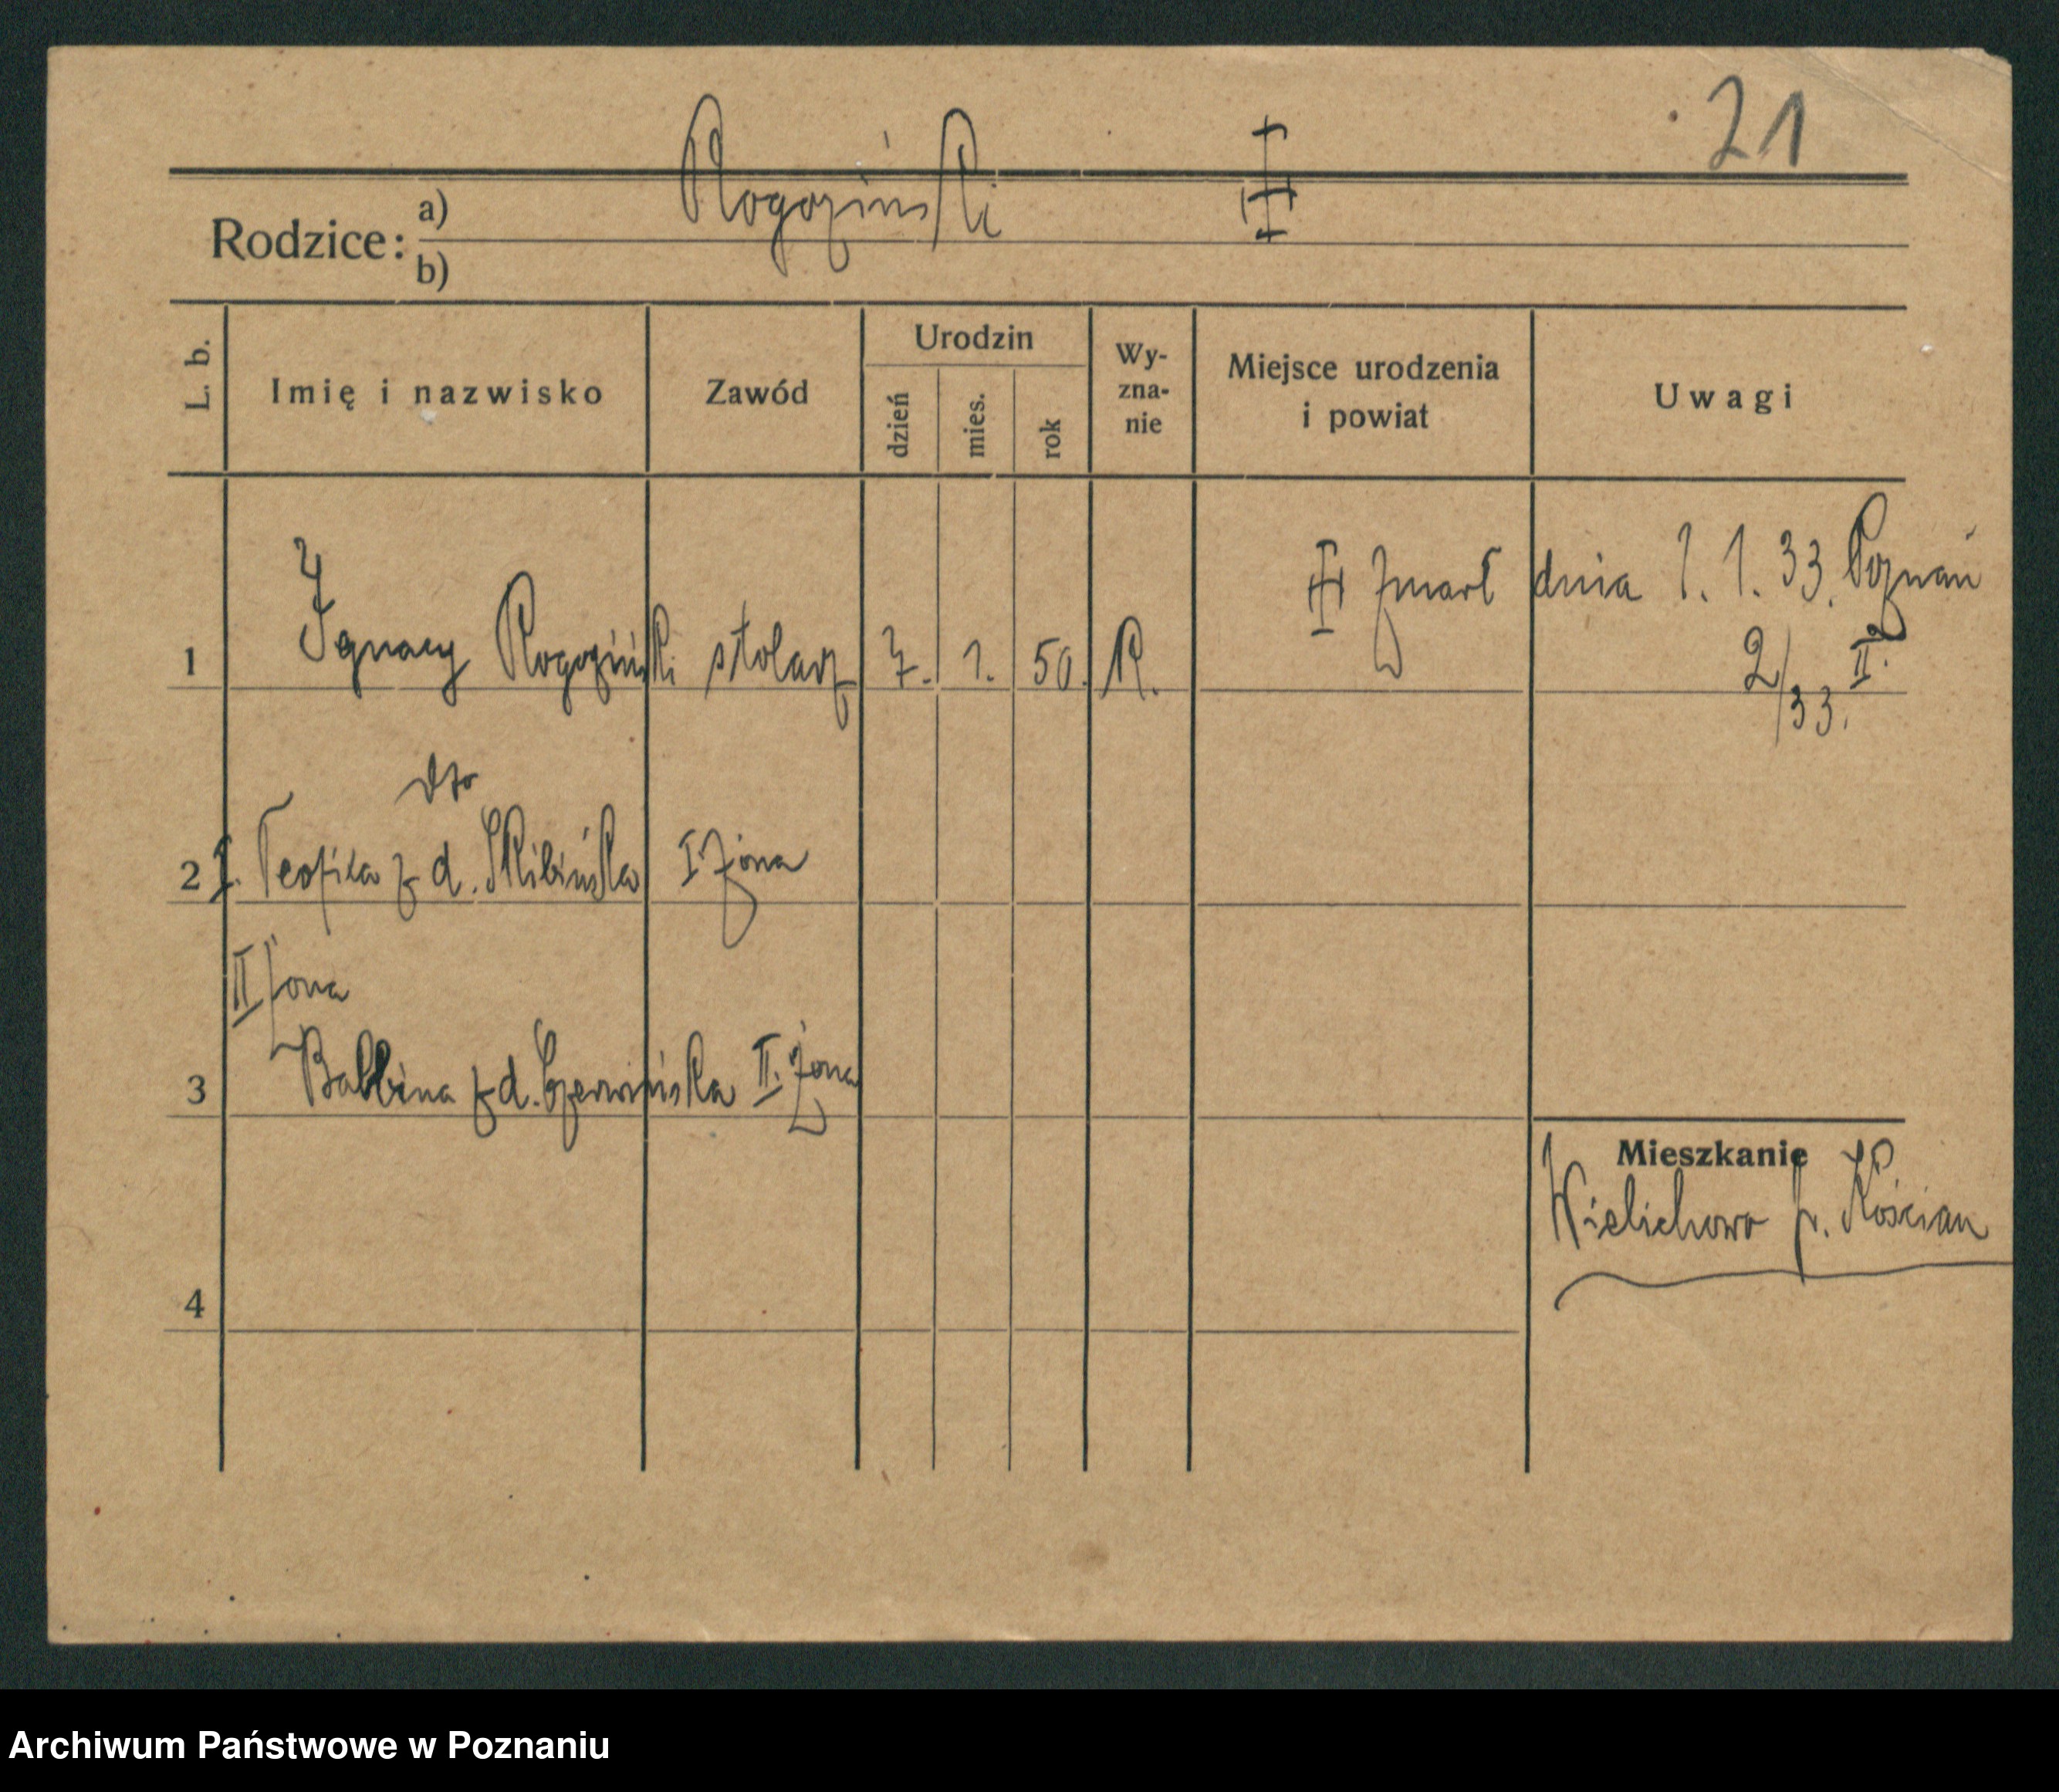 21
Rogoziński
Rodzice: a)
b)
L. b.
Imię i nazwisko
Zawód
Urodzin
dzień
mies.
rok
Wy-
zna-
nie
Miejsce urodzenia
i powiat
Uwagi
zmarł dnia 1. 1. 33. Poznań
1 Ignacy Rogoziński stolarz 7. 1. 50. R.
2/II. 33.
dto
2 I. Teofila z d. Skibińska I żona
II żona
3 Balbina z d. Czerwińska II. żona
Mieszkanie
Wielichowo p. Kościan
4
Archiwum Państwowe w Poznaniu